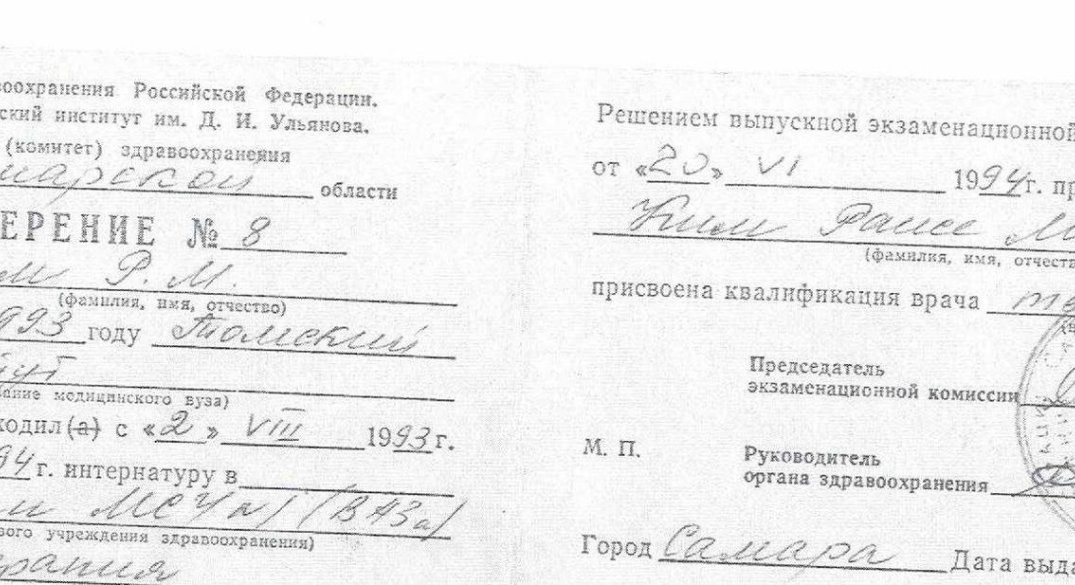 воохранения Российской Федерации.
ский институт им. Д. И. Ульянова.
(комитет) здравоохранения
марской области
ЕРЕНИЕ № 8
м Р. М.
(фамилия, имя, отчество)
993 году Томский
(ание медицинского вуза)
ходил(а) с «2» VIII 1993 г.
94 г. интернатуру в
МСЧ №1 (ВАЗа)
вого учреждения здравоохранения)
ерапия
Решением выпускной экзаменационной
от «20» VI 1994 г. пр
Ким Раисе Ми
(фамилия, имя, отчеств
присвоена квалификация врача те
Председатель
экзаменационной комиссии
М. П.
Руководитель
органа здравоохранения
Город Самара Дата выда